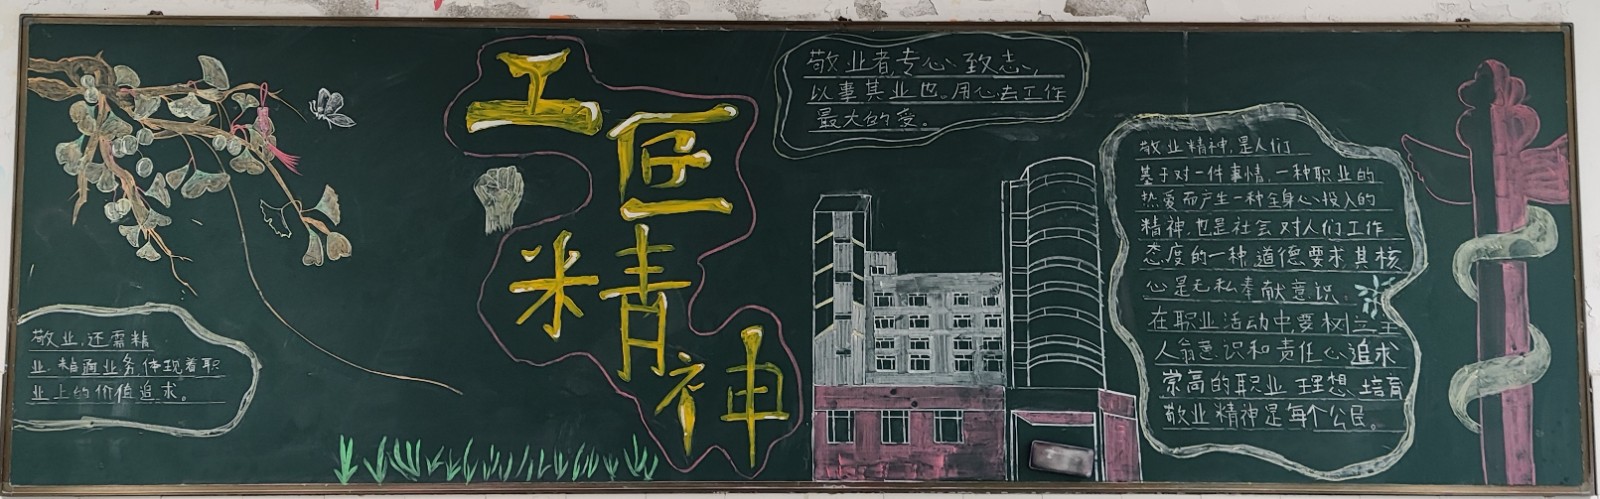 工匠
精神
敬业者,专心致志,
以事其业也。用心去工作
最大的爱。
敬业,还需精
业.精通业务.体现着职
业上的价值追求。
敬业精神,是人们
基于对一件事情,一种职业的
热爱而产生一种全身心投入的
精神.也是社会对人们工作
态度的一种道德要求.其核
心是无私奉献意识.
在职业活动中,要树立主
人翁意识和责任心,追求
崇高的职业理想.培育
敬业精神是每个公民。